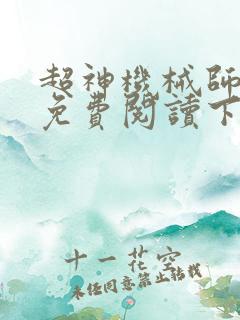 超神機械師
免費閱讀下
十一花空
未经同意禁止转载